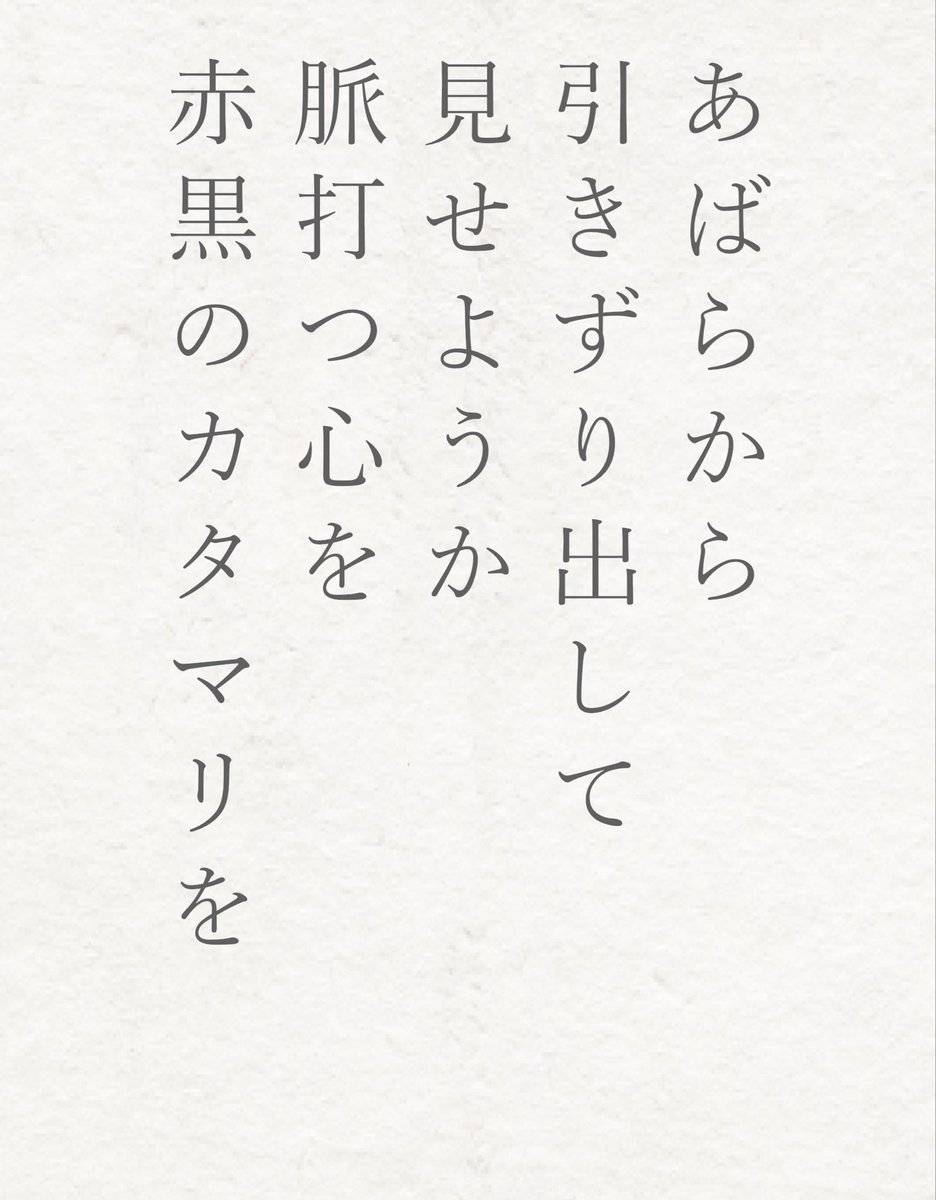 あばらから
引きずり出して
見せようか
脈打つ心を
赤黒のカタマリを